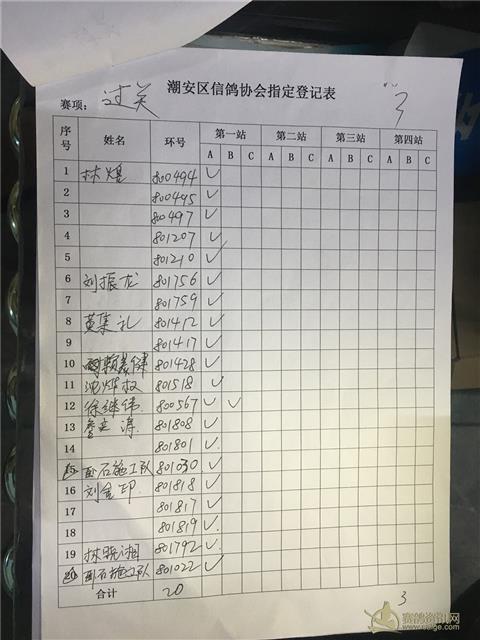 潮安区信鸽协会指定登记表
赛项： 过关 3
序号 姓名 环号 第一站 第二站 第三站 第四站
A B C A B C A B C A B C
1 林煌 800494 ✓
2 800495 ✓
3 800497 ✓
4 801207 ✓
5 801210 ✓
6 刘振龙 801756 ✓
7 801759 ✓
8 黄集礼 801412 ✓
9 801417 ✓
10 赖嘉健 801428 ✓
11 沈烨权 801518 ✓
12 徐继伟 800567 ✓ ✓
13 詹奕涛 801808 ✓
14 801801 ✓
15 石施工队 801030 ✓
16 刘金印 801818 ✓
17 801817 ✓
18 801819 ✓
19 林晓湘 801792 ✓
20 石施工队 801022 ✓
合计 20 3
赛鸽资讯网
saige.com